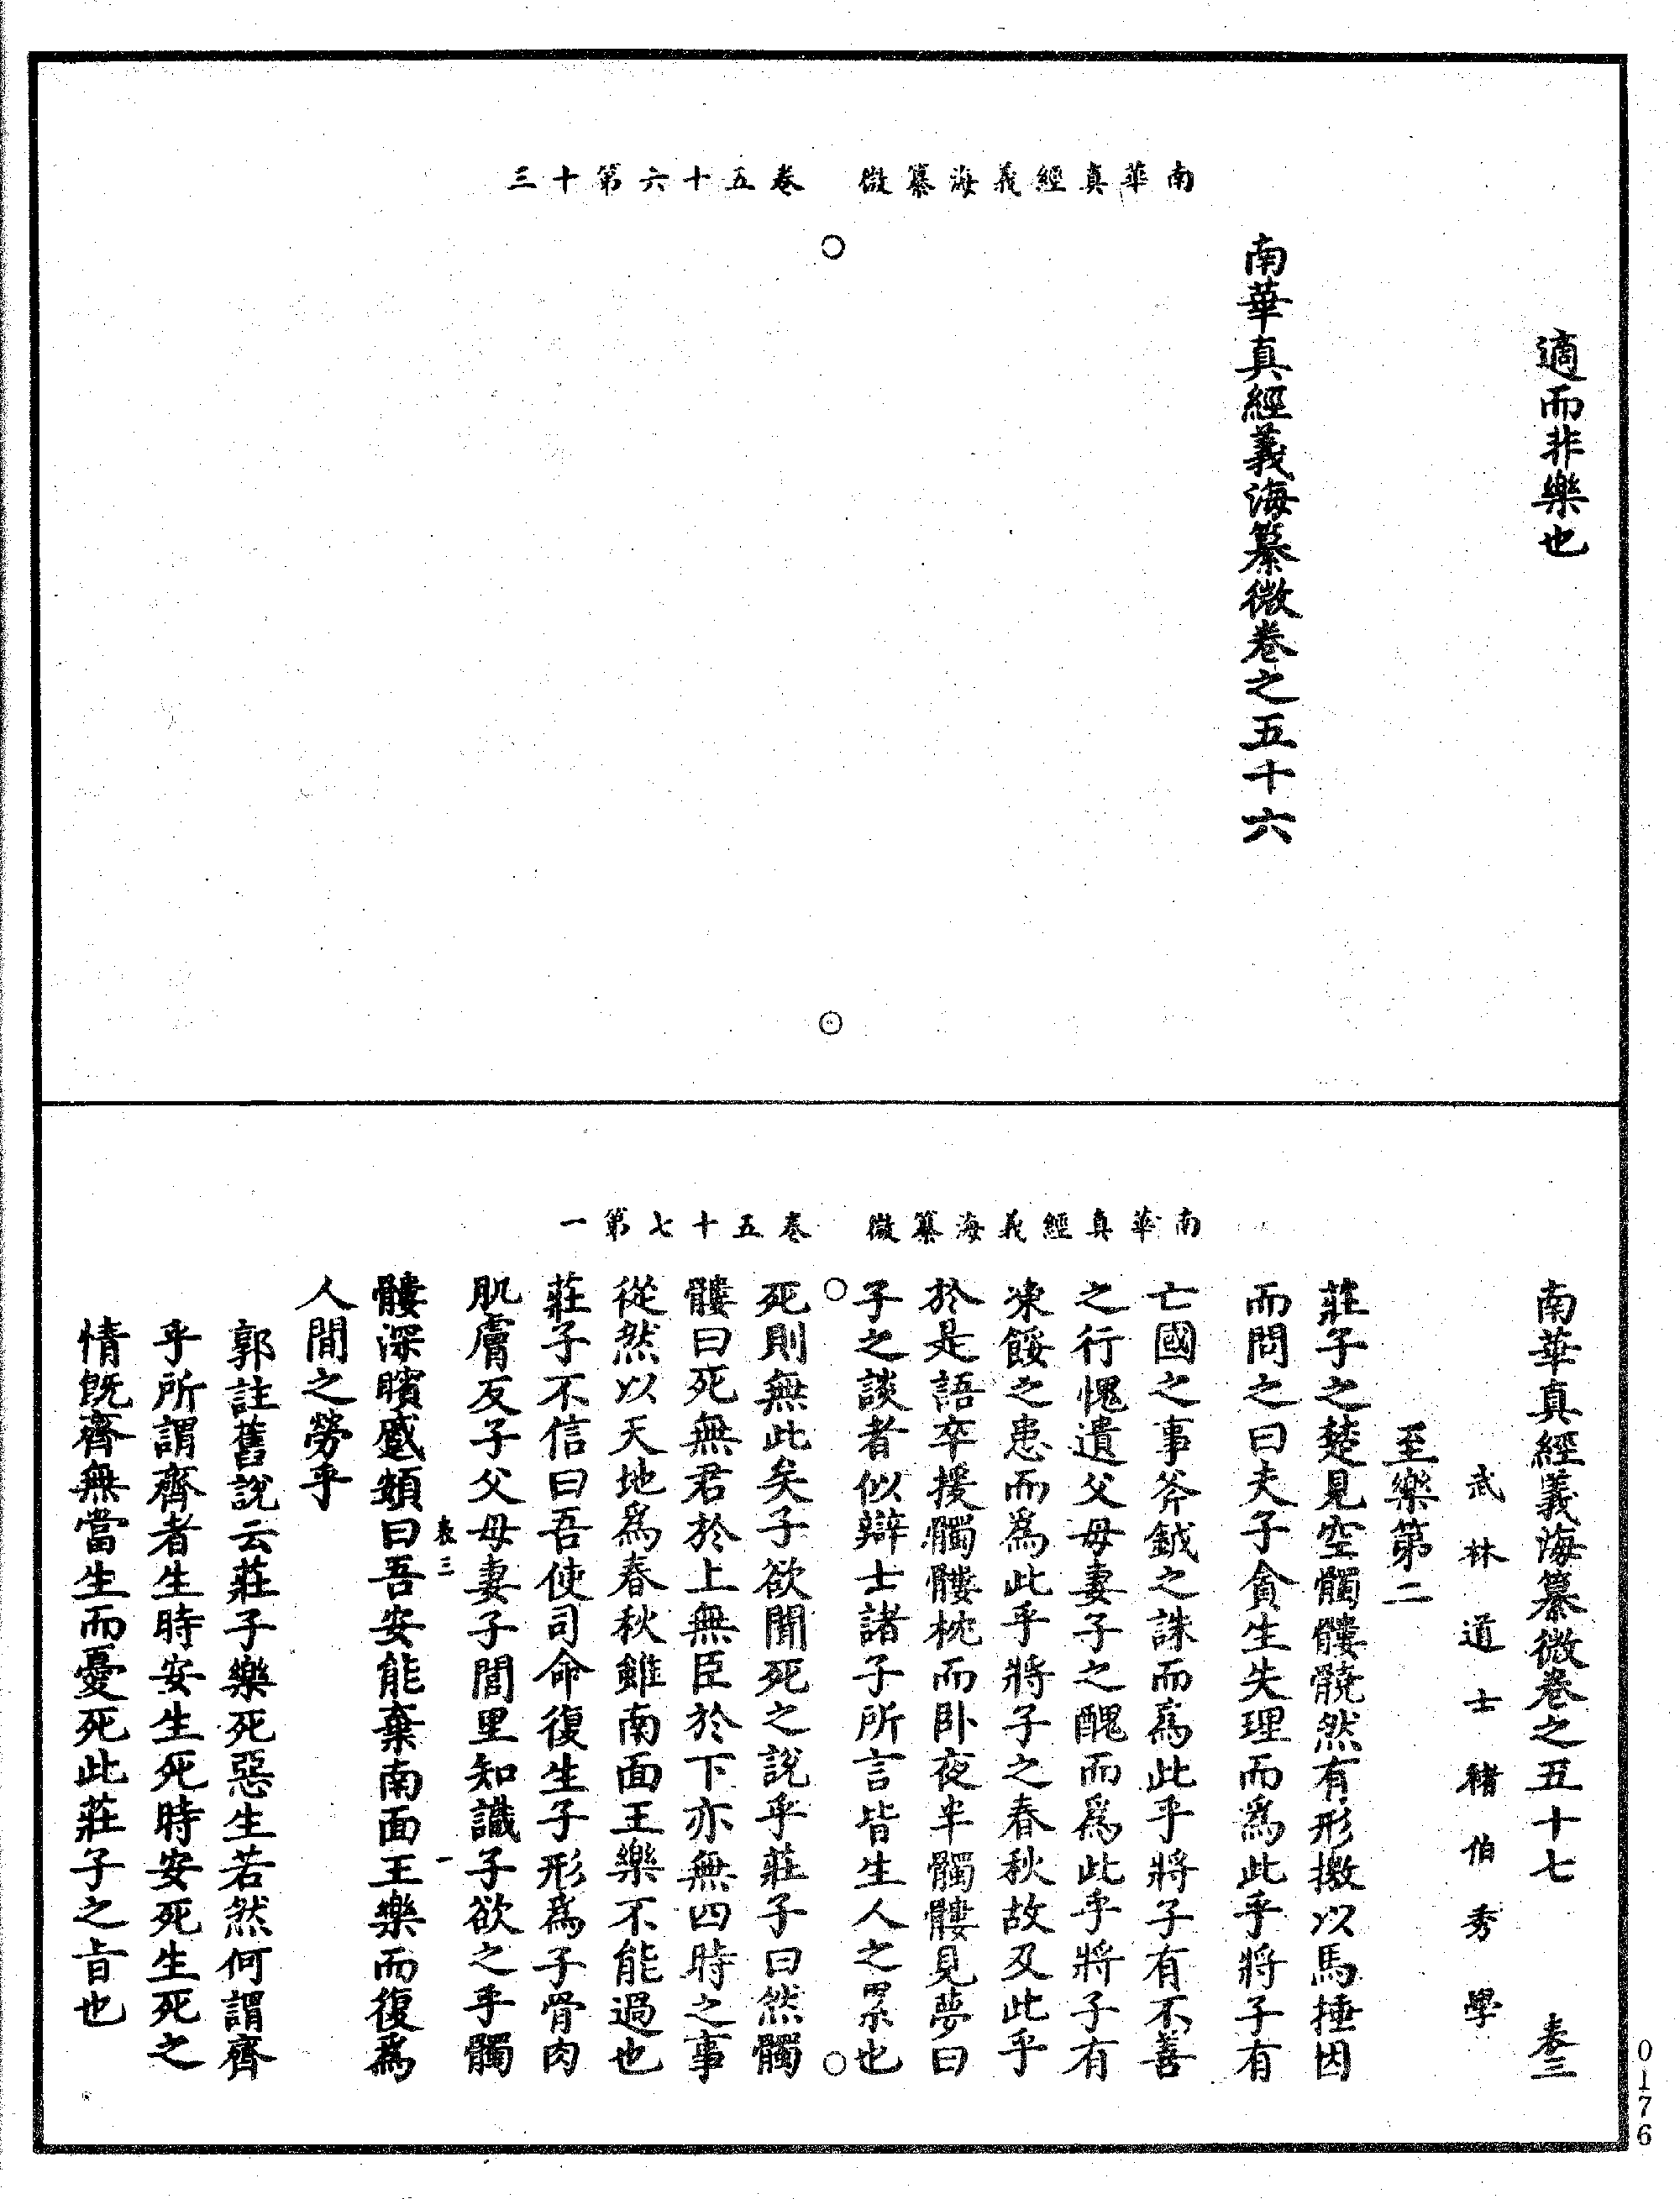 南華真經義海纂微　卷五十六第十三
適而非樂也
南華真經義海纂微卷之五十六
南華真經義海纂微　卷五十七第一
南華真經義海纂微卷之五十七　表三
武林道士褚伯秀學
至樂第二
莊子之楚見空髑髏髐然有形撽以馬捶因
而問之曰夫子貪生失理而爲此乎將子有
亡國之事斧鉞之誅而爲此乎將子有不善
之行愧遺父母妻子之醜而爲此乎將子有
凍餒之患而爲此乎將子之春秋故及此乎
於是語卒援髑髏枕而卧夜半髑髏見夢曰
子之談者似辯士諸子所言皆生人之累也
死則無此矣子欲聞死之說乎莊子曰然髑
髏曰死無君於上無臣於下亦無四時之事
從然以天地爲春秋雖南面王樂不能過也
莊子不信曰吾使司命復生子形爲子骨肉
肌膚反子父母妻子閭里知識子欲之乎髑
表三　一
髏深矉蹙頞曰吾安能棄南面王樂而復爲
人間之勞乎
郭註舊說云莊子樂死惡生若然何謂齊
乎所謂齊者生時安生死時安死生死之
情既齊無當生而憂死此莊子之旨也
0176